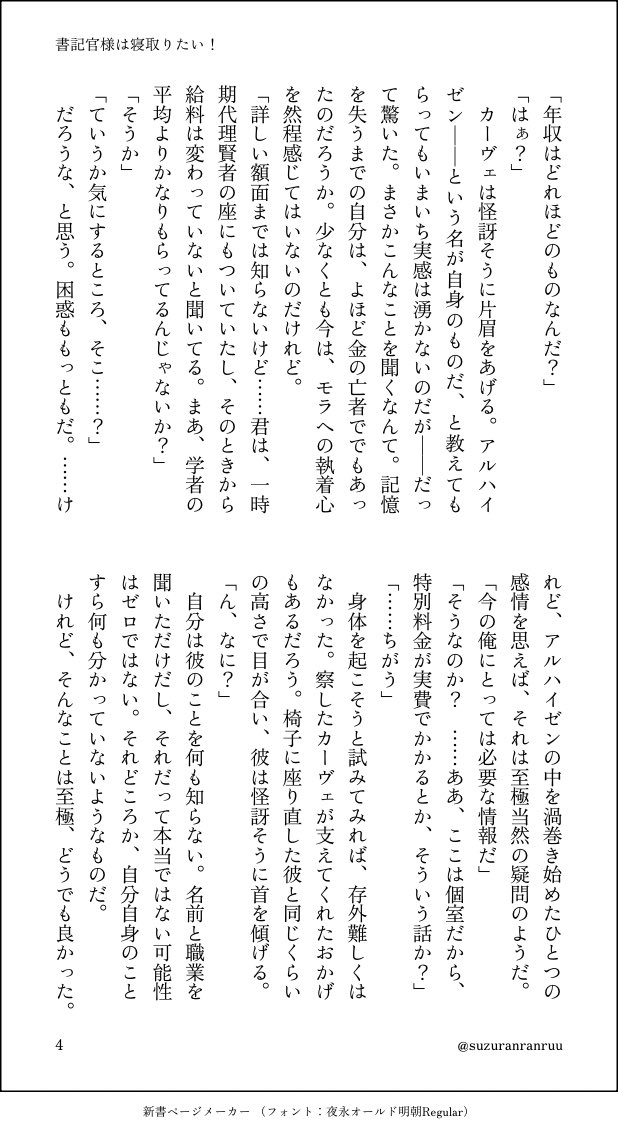 書記官様は寝取りたい！
「年収はどれほどのものなんだ？」
「はぁ？」
　カーヴェは怪訝そうに片眉をあげる。アルハイ
ゼン――という名が自身のものだ、と教えても
らってもいまいち実感は湧かないのだが――だっ
て驚いた。まさかこんなことを聞くなんて。記憶
を失うまでの自分は、よほど金の亡者ででもあっ
たのだろうか。少なくとも今は、モラへの執着心
を然程感じてはいないのだけれど。
「詳しい額面までは知らないけど……君は、一時
期代理賢者の座にもついていたし、そのときから
給料は変わっていないと聞いてる。まあ、学者の
平均よりかなりもらってるんじゃないか？」
「そうか」
「ていうか気にするところ、そこ……？」
　だろうな、と思う。困惑ももっともだ。……け
れど、アルハイゼンの中を渦巻き始めたひとつの
感情を思えば、それは至極当然の疑問のようだ。
「今の俺にとっては必要な情報だ」
「そうなのか？　……ああ、ここは個室だから、
特別料金が実費でかかるとか、そういう話か？」
「……ちがう」
　身体を起こそうと試みてみれば、存外難しくは
なかった。察したカーヴェが支えてくれたおかげ
もあるだろう。椅子に座り直した彼と同じくらい
の高さで目が合い、彼は怪訝そうに首を傾げる。
「ん、なに？」
　自分は彼のことを何も知らない。名前と職業を
聞いただけだし、それだって本当ではない可能性
はゼロではない。それどころか、自分自身のこと
すら何も分かっていないようなものだ。
　けれど、そんなことは至極、どうでも良かった。
4
@suzuranranruu
新書ページメーカー（フォント：夜永オールド明朝Regular）